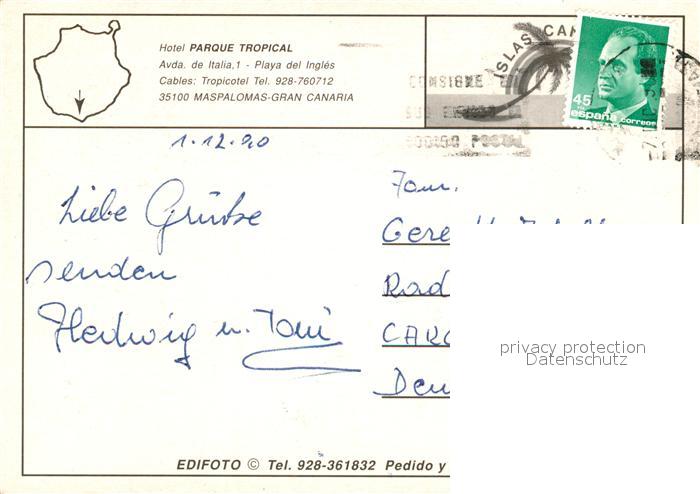 Hotel PARQUE TROPICAL
Avda. de Italia,1 - Playa del Inglés
Cables: Tropicotel Tel. 928-760712
35100 MASPALOMAS-GRAN CANARIA
ISLAS CAN
CONSIGNE
CODIGO POSTAL
45
españa correos
1.12.90
Liebe Grüsse
senden
Hedwig u. Toni
Fam.
Gere
Rad
privacy protection
Datenschutz
EDIFOTO © Tel. 928-361832 Pedido y